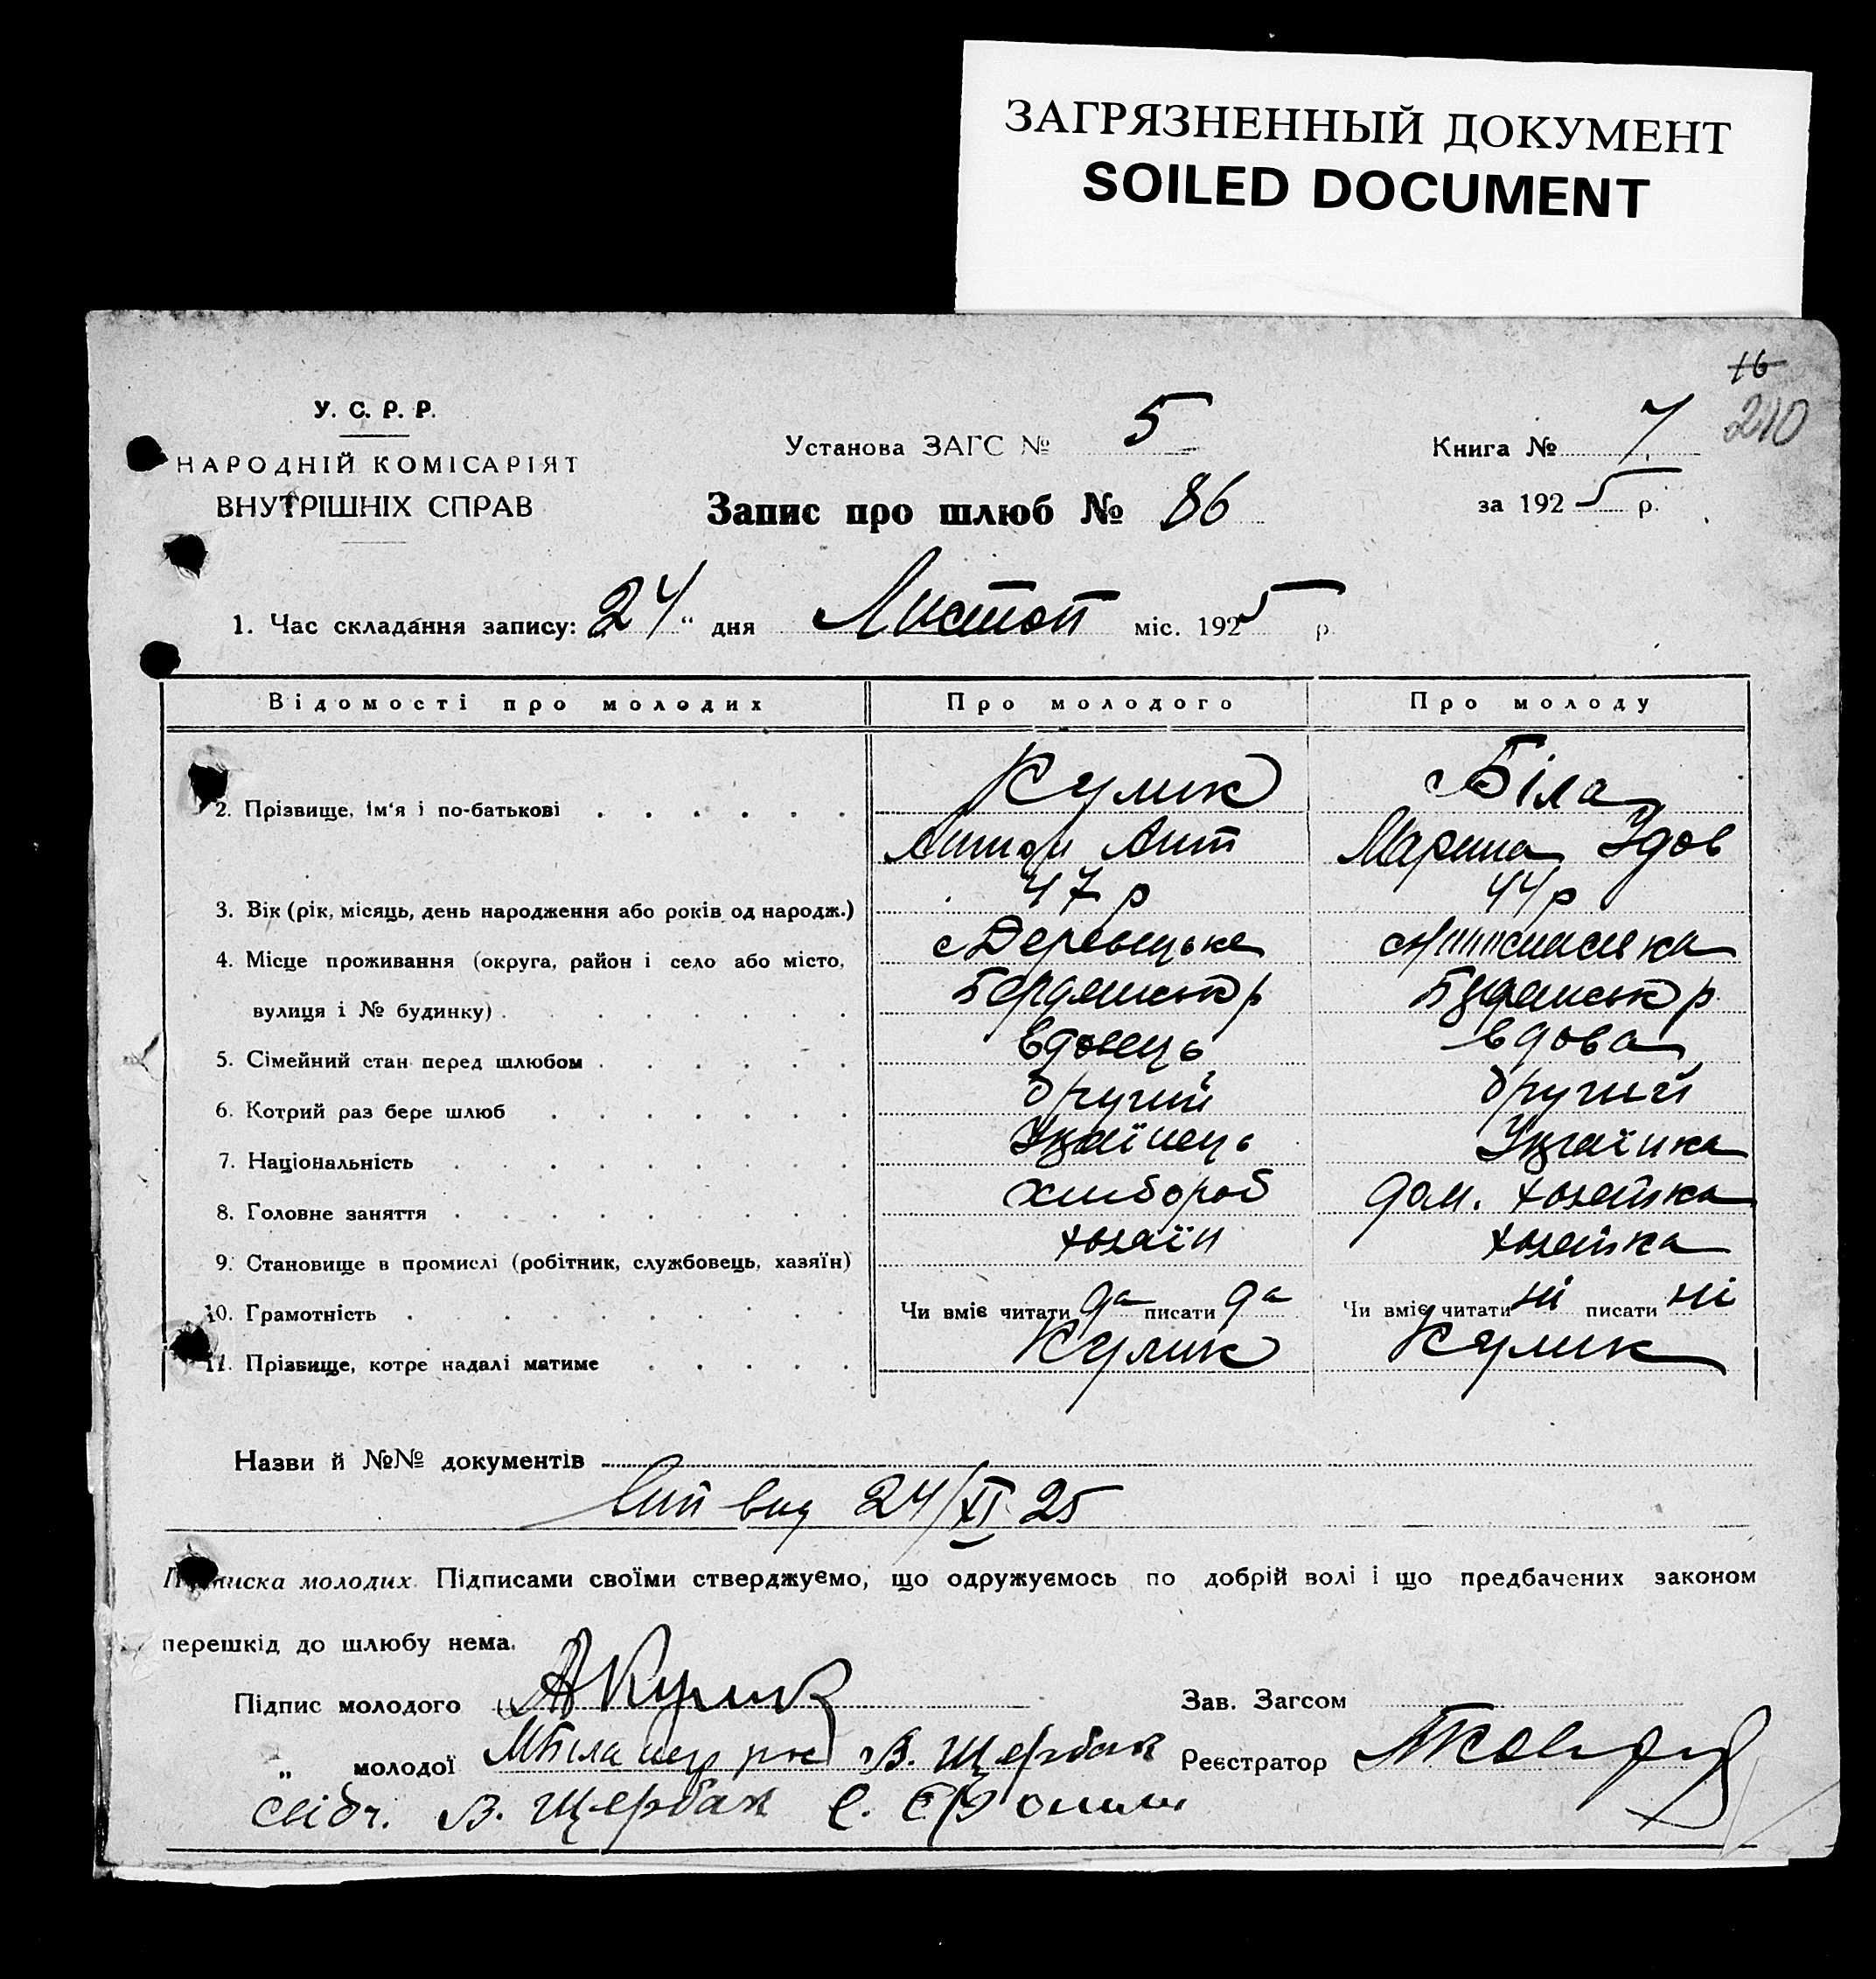 ЗАГРЯЗНЕННЫЙ ДОКУМЕНТ
SOILED DOCUMENT
16
210
У. С. Р. Р.
НАРОДНІЙ КОМІСАРІЯТ
ВНУТРІШНІХ СПРАВ
Установа ЗАГС № 5
Книга № 7
за 1925 р.
Запис про шлюб № 86
1. Час складання запису: „24“ дня Листоп міс. 1925 р
Відомості про молодих Про молодого Про молоду
2. Прізвище, ім'я і по-батькові Кулик Біла
Антон Ант Марина
3. Вік (рік, місяць, день народження або років од народж.) 47 р 44 р
4. Місце проживання (округа, район і село або місто,
вулиця і № будинку)
5. Сімейний стан перед шлюбом вдовець вдова
6. Котрий раз бере шлюб другий другий
7. Національність Українець Українка
8. Головне заняття хлібороб дом. хозяйка
9. Становище в промислі (робітник, службовець, хазяїн) хозяїн хозяйка
10. Грамотність Чи вміє читати да писати да Чи вміє читати ні писати ні
11. Прізвище, котре надалі матиме Кулик Кулик
Назви й №№ документів
24/XI 25
Підписка молодих. Підписами своїми стверджуємо, що одружуємось по добрій волі і що предбачених законом
перешкід до шлюбу нема.
Підпис молодого А Кулик Зав. Загсом
„ молодої М Біла В. Щербак Реєстратор
свідч. В. Щербак